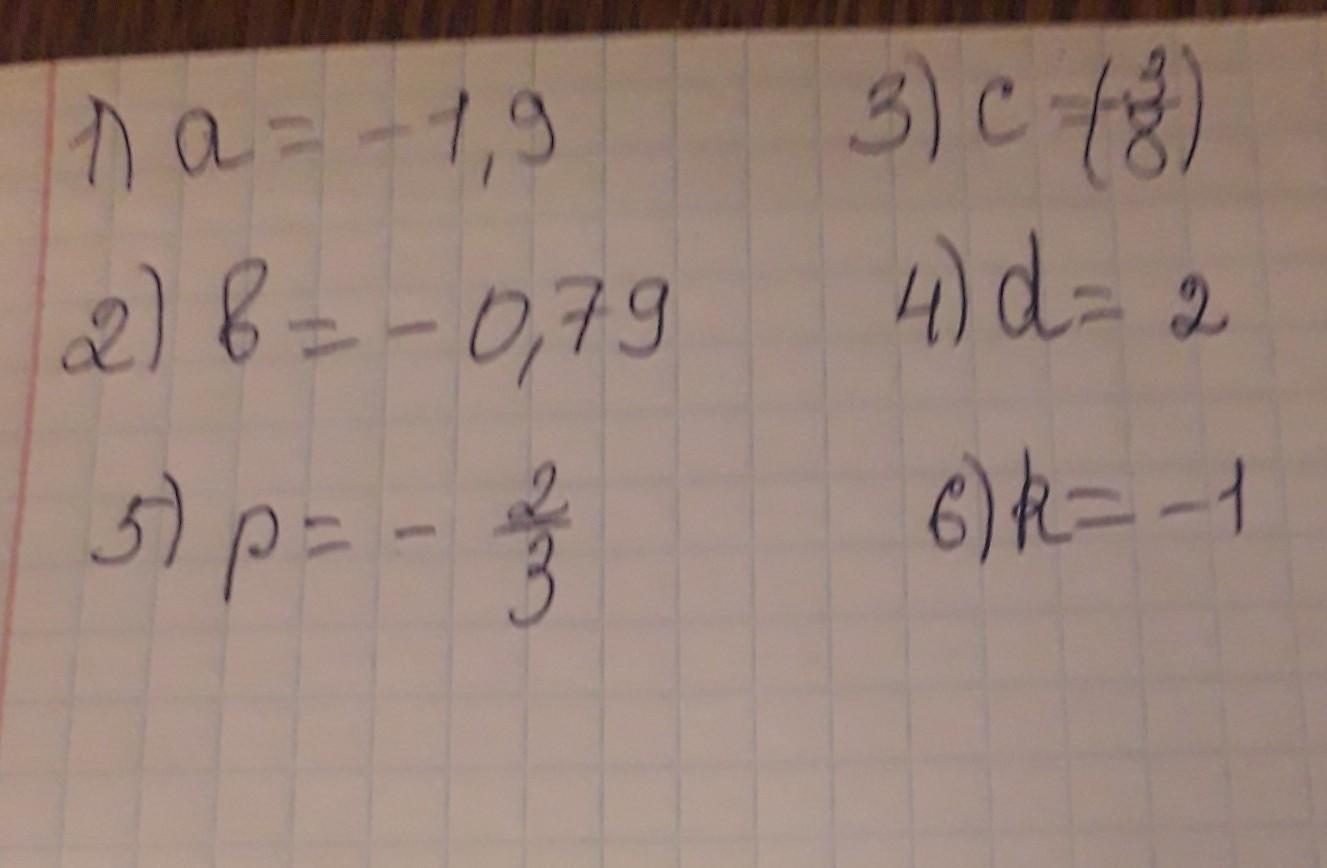 1) a = -1,9 3) c = (-3/8)
2) b = - 0,79 4) d = 2
5) p = - 2/3 6) k = -1